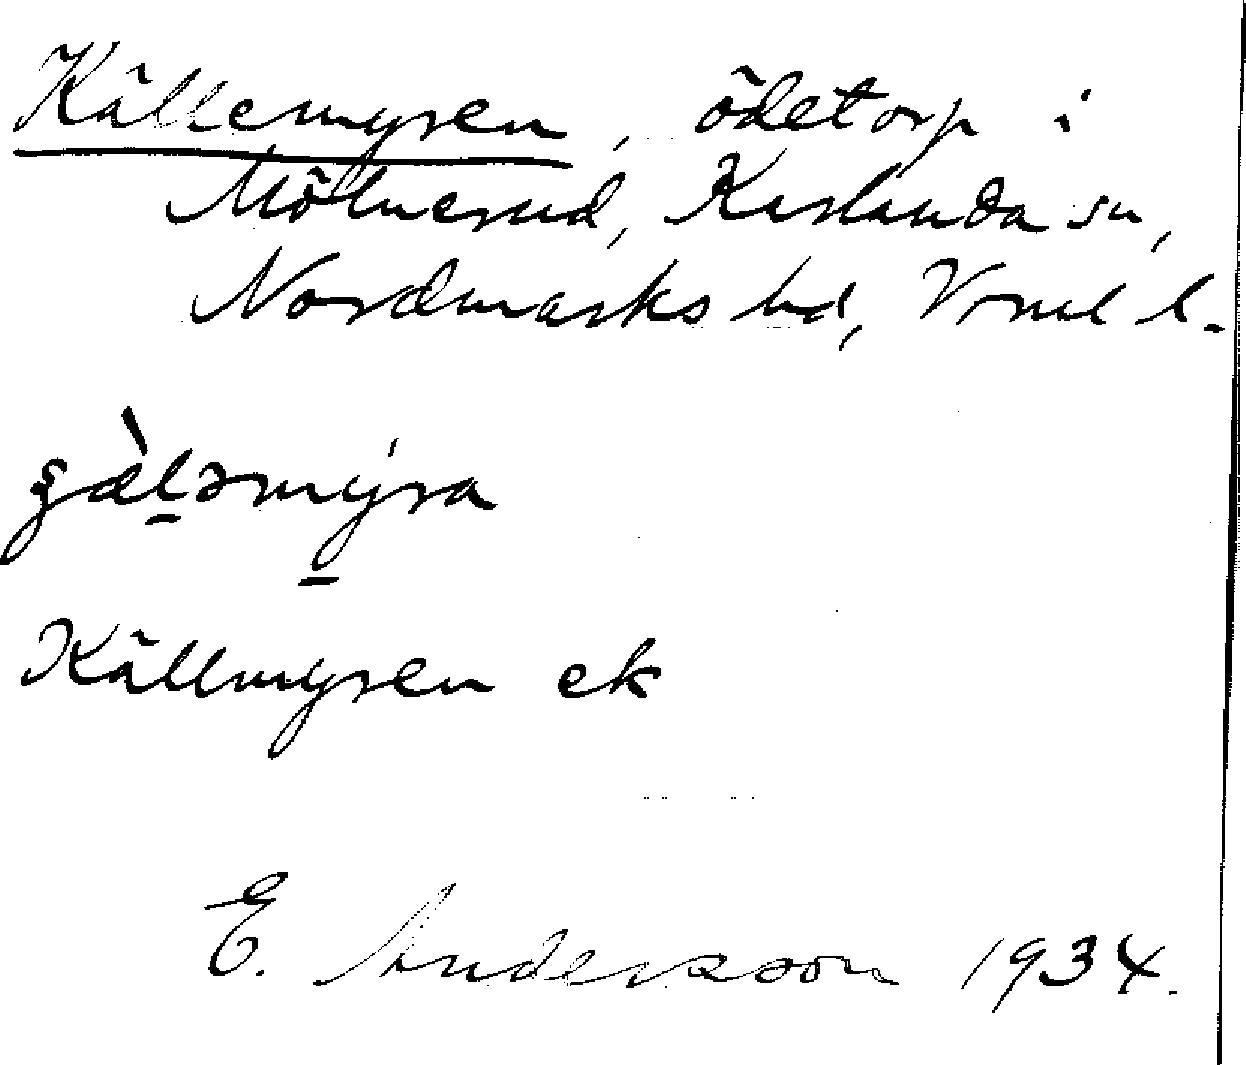 Källemyren, ödetorp i
Mölnerud, Karlanda sn,
Nordmarks hd, Vrml l.
Källmyren ek
E. Andersson 1934.